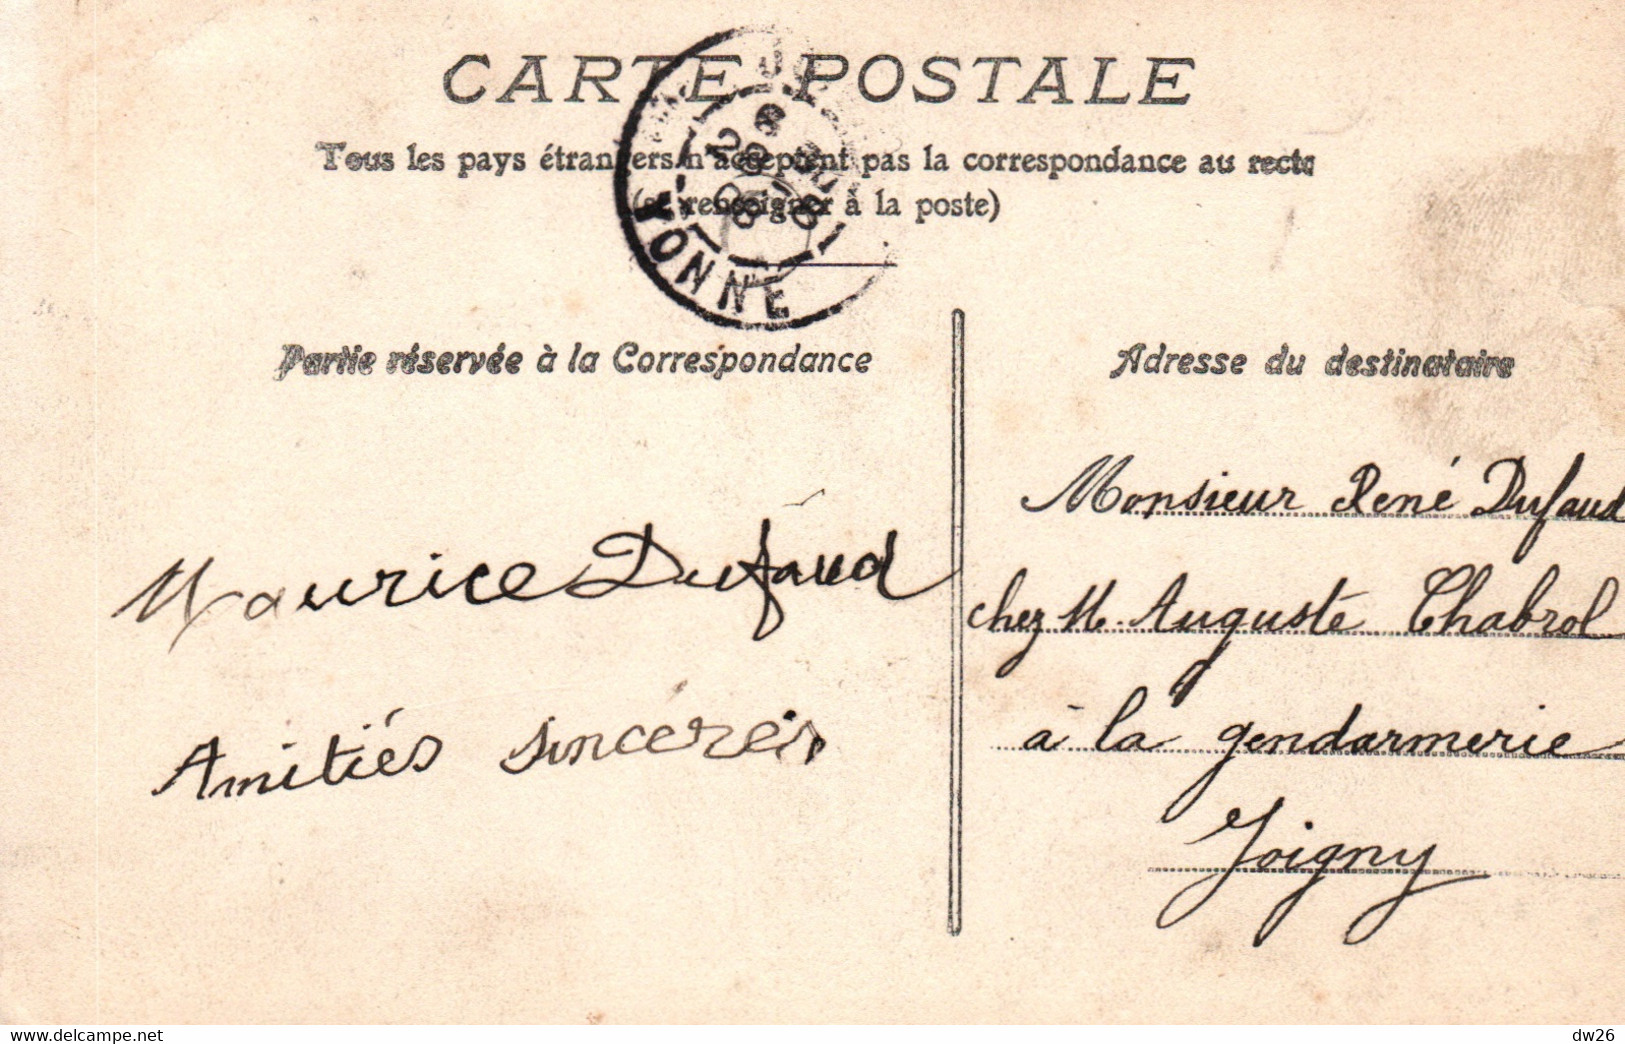 CARTE POSTALE
Tous les pays étrangers n'acceptent pas la correspondance au recto
(se renseigner à la poste)
YONNE
Partie réservée à la Correspondance
Adresse du destinataire
Maurice Dufaud
Amitiés sincères
Monsieur René Dufaud
chez M. Auguste Chabrol
à la gendarmerie
Joigny
delcampe.net
dw26